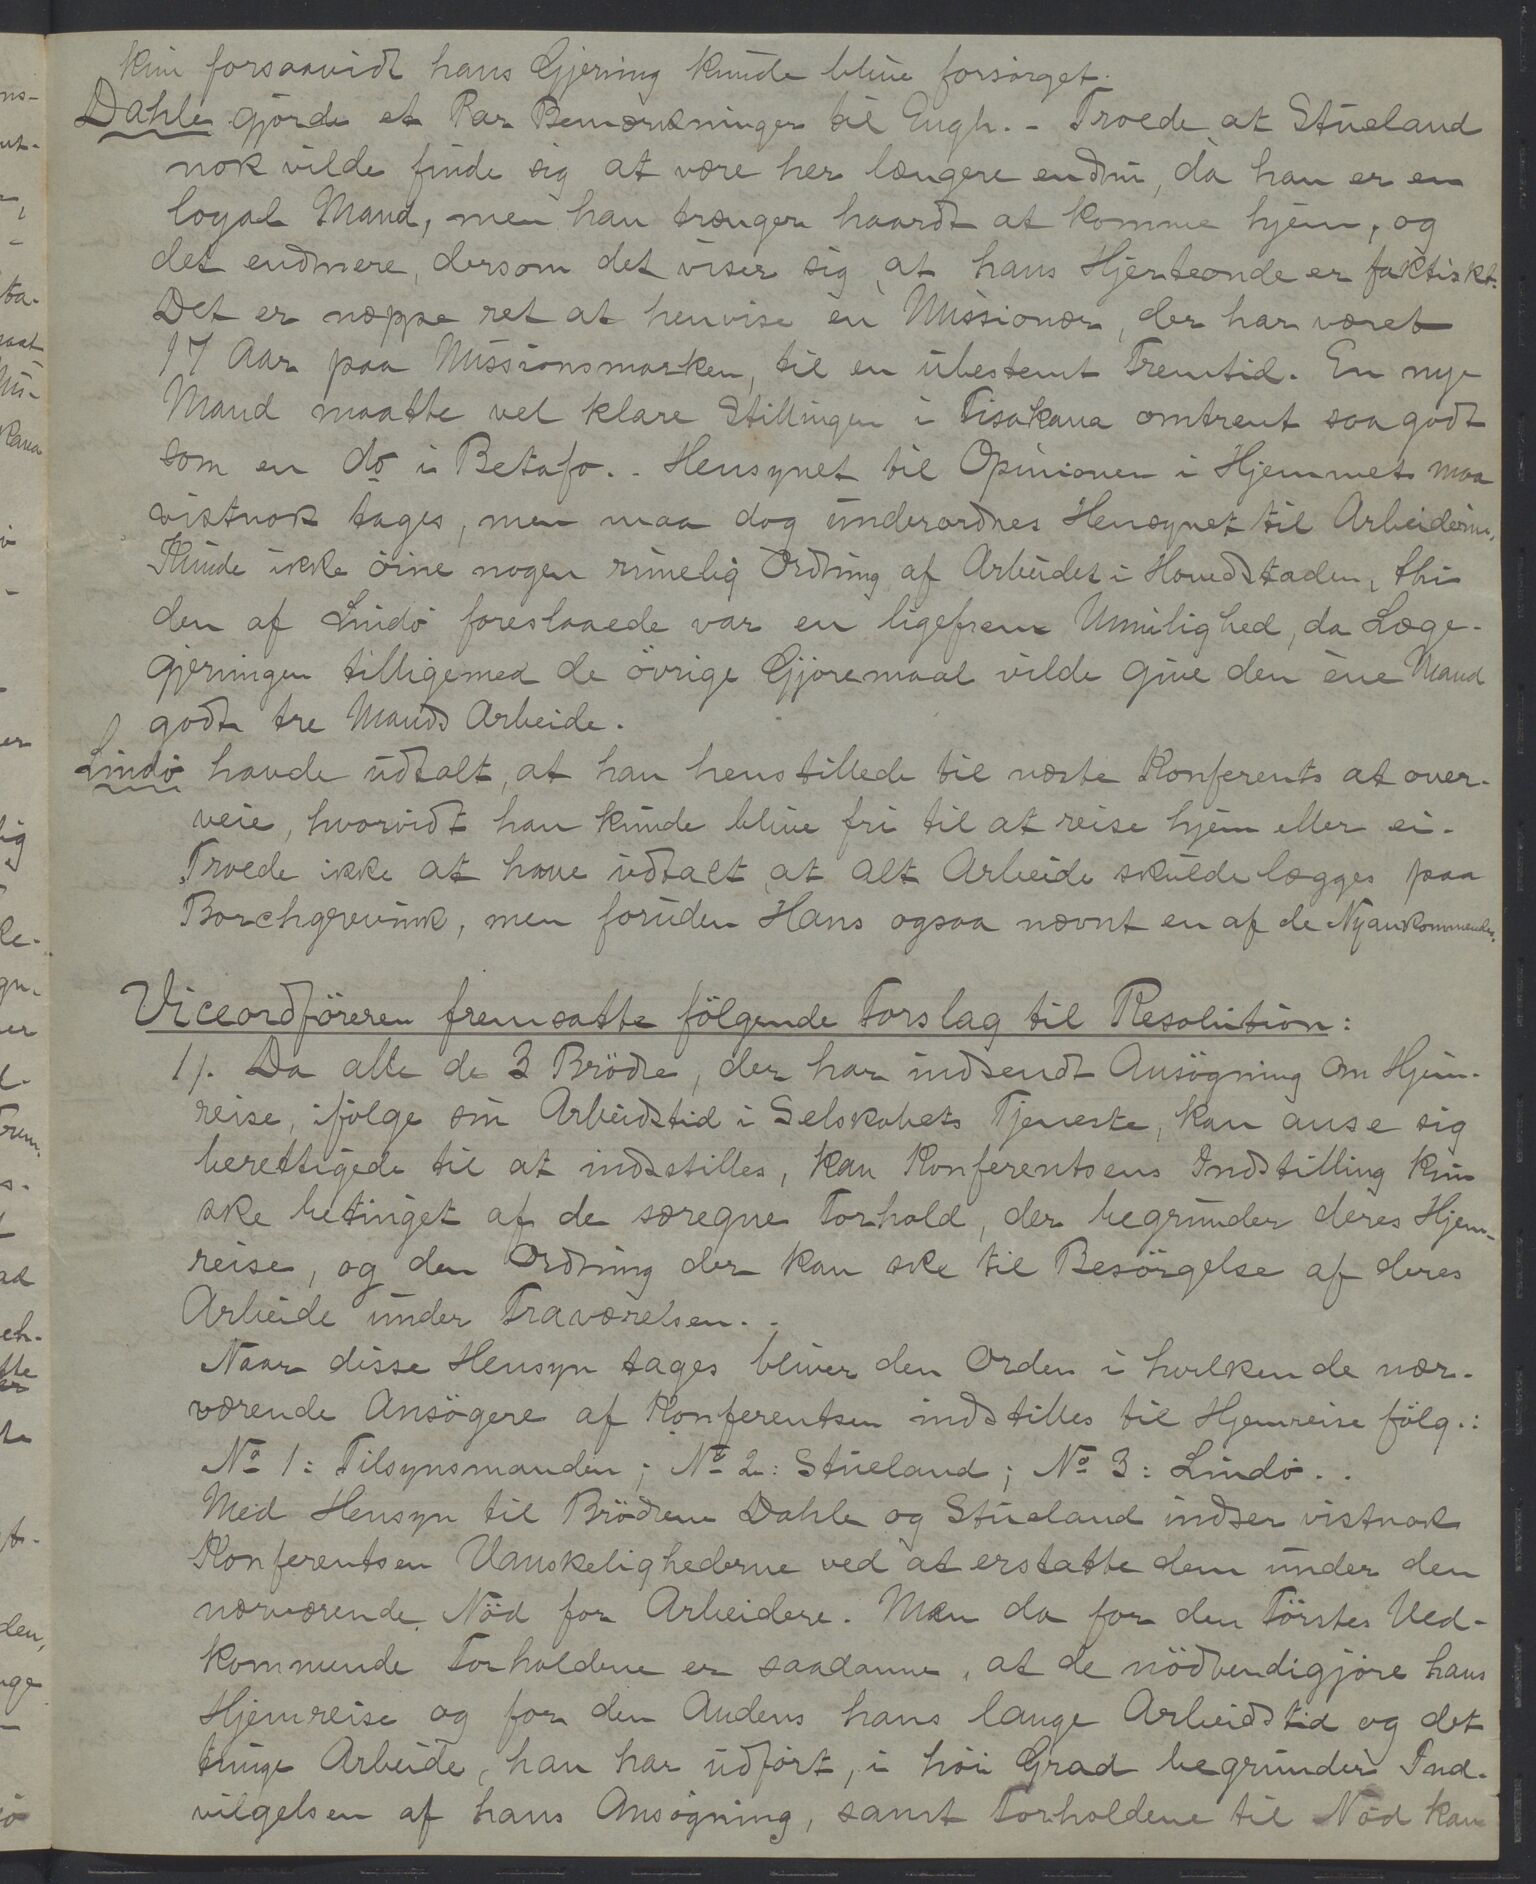 kun forsaavidt hans Gjerning kunde blive forsörget.
Dahle gjörde et Par Bemærkninger til Engh. - Troede at Stueland
nok vilde finde sig at være her længere endnu, da han er en
loyal Mand, men han trænger haardt at komme hjem, og
det endmere, dersom det viser sig, at hans Hjerteonde er faktiskt.
Det er næppe ret at henvise en Missionær, der har været
17 Aar paa Missionsmarken, til en übestemt Fremtid. En nye
Mand maatte vel klare Stillingen i Fisakana omtrent saa godt
som en do i Betafo. - Hensynet til Opinionen i Hjemmet maa
vistnok tages, men maa dog underordnes Hensynet til Arbeiderne.
Kunde ikke öine nogen rimelig Ordning af Arbeidet i Hovedstaden, thi
den af Lindö foreslaaede var en ligefrem Umulighed, da Læge-
gjerningen tilligemed de övrige Gjöremaal vilde give den ene Mand
godt tre Mands Arbeide.
Lindö havde udtalt, at han henstillede til næste Konferents at over-
veie, hvorvidt han kunde blive fri til at reise hjem eller ei.
Troede ikke at have udtalt, at alt Arbeide skulde lægges paa
Borchgrevink, men foruden Hans ogsaa nævnt en af de Nyankommende.
Viceordföreren fremsatte fölgende Forslag til Resolution:
1/. Da alle de 3 Brödre, der har indsendt Ansögning om Hjem-
reise, ifölge sin Arbeidstid i Selskabets Tjeneste, kan anse sig
berettigede til at indstilles, kan Konferentsens Indstilling kun
ske betinget af de særegne Forhold, der begrunder deres Hjem-
reise, og den Ordning der kan ske til Besörgelse af deres
Arbeide under Fraværelsen. .
Naar disse Hensyn tages bliver den Orden i hvilken de nær-
værende Ansögere af Konferentsen indstilles til Hjemreise fölg.:
No 1: Tilsynsmanden; No 2: Stueland; No 3: Lindö. .
Med Hensyn til Brödrene Dahle og Stueland indser vistnok
Konferentsen Vanskelighederne ved at erstatte dem under den
nærværende Nöd for Arbeidere. Men da for den Förstes Ved-
kommende Forholdene er saadanne, at de nödvendigjöre hans
Hjemreise og for den Andens hans lange Arbeidstid og det
tunge Arbeide, han har udfört, i höi Grad begrunder Ind-
vilgelsen af hans Ansögning, samt Forholdene til Nöd kan